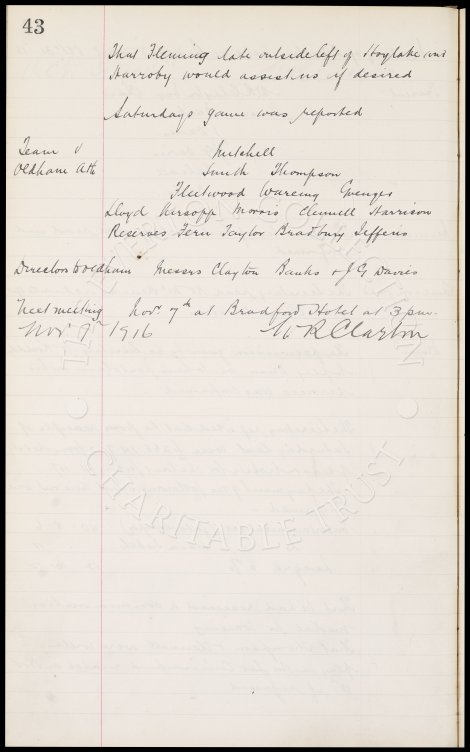 43
That Fleming late outside left of Hoylake and
Harroby would assist us if desired
Saturdays game was reported
Team v Mitchell
Oldham Ath Smith Thompson
Fleetwood Wareing Grenyer
Lloyd Kirsopp Morris Clennell Harrison
Reserves Fern Taylor Bradbury Jefferis
Directors to Oldham Messrs Clayton Banks & J G Davies
Next meeting Nov. 7th at Bradford Hotel at 3 pm.
Nov. 7th 1916 W R Clayton
CHARITABLE TRUST